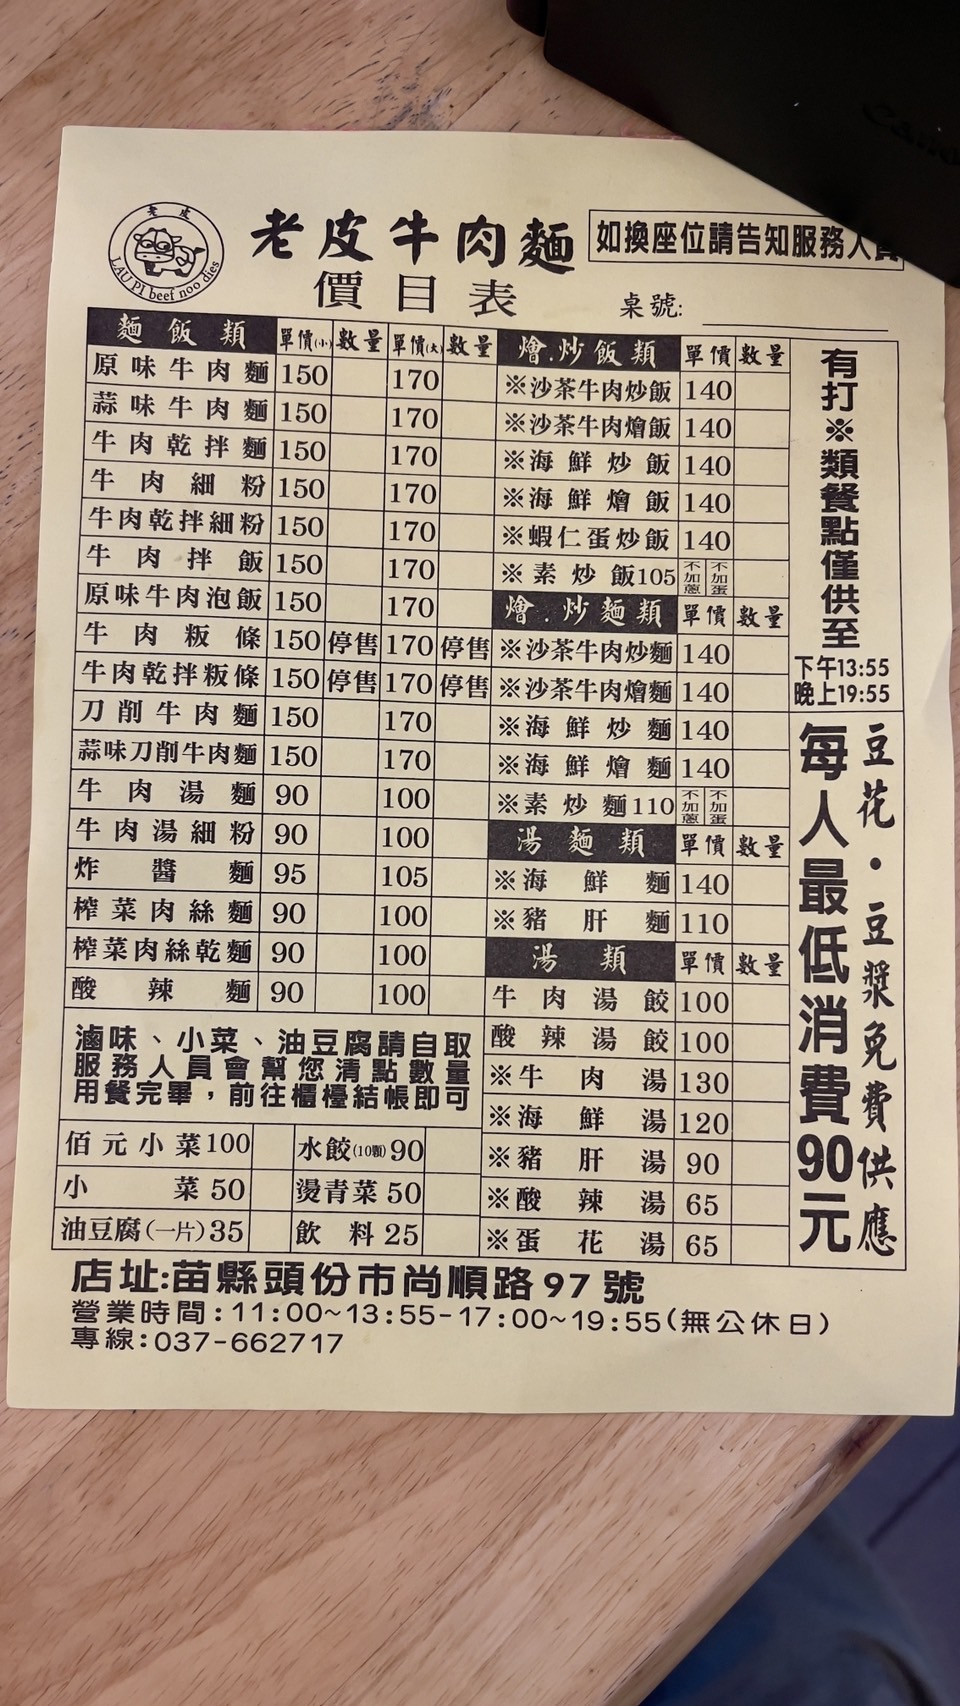 老皮
LAU PI beef noo dies
老皮牛肉麵
如換座位請告知服務人員
價目表
桌號:
麵飯類 單價(小) 數量 單價(大) 數量
原味牛肉麵 150 170
蒜味牛肉麵 150 170
牛肉乾拌麵 150 170
牛肉細粉 150 170
牛肉乾拌細粉 150 170
牛肉拌飯 150 170
原味牛肉泡飯 150 170
牛肉粄條 150 停售 170 停售
牛肉乾拌粄條 150 停售 170 停售
刀削牛肉麵 150 170
蒜味刀削牛肉麵 150 170
牛肉湯麵 90 100
牛肉湯細粉 90 100
炸醬麵 95 105
榨菜肉絲麵 90 100
榨菜肉絲乾麵 90 100
酸辣麵 90 100
滷味、小菜、油豆腐請自取
服務人員會幫您清點數量
用餐完畢，前往櫃檯結帳即可
佰元小菜100 水餃(10顆)90
小菜 50 燙青菜 50
油豆腐(一片)35 飲料 25
燴.炒飯類 單價 數量
※沙茶牛肉炒飯 140
※沙茶牛肉燴飯 140
※海鮮炒飯 140
※海鮮燴飯 140
※蝦仁蛋炒飯 140
※素炒飯105 不加蔥 不加蛋
燴.炒麵類 單價 數量
※沙茶牛肉炒麵 140
※沙茶牛肉燴麵 140
※海鮮炒麵 140
※海鮮燴麵 140
※素炒麵110 不加蔥 不加蛋
湯麵類 單價 數量
※海鮮麵 140
※豬肝麵 110
湯類 單價 數量
牛肉湯餃 100
酸辣湯餃 100
※牛肉湯 130
※海鮮湯 120
※豬肝湯 90
※酸辣湯 65
※蛋花湯 65
有打※類餐點僅供至
下午13:55
晚上19:55
豆花・豆漿免費供應
每人最低消費90元
店址:苗縣頭份市尚順路97號
營業時間:11:00~13:55-17:00~19:55(無公休日)
專線:037-662717